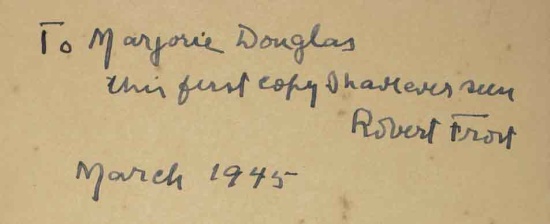 To Marjorie Douglas
this first copy I have ever seen
Robert Frost
March 1945